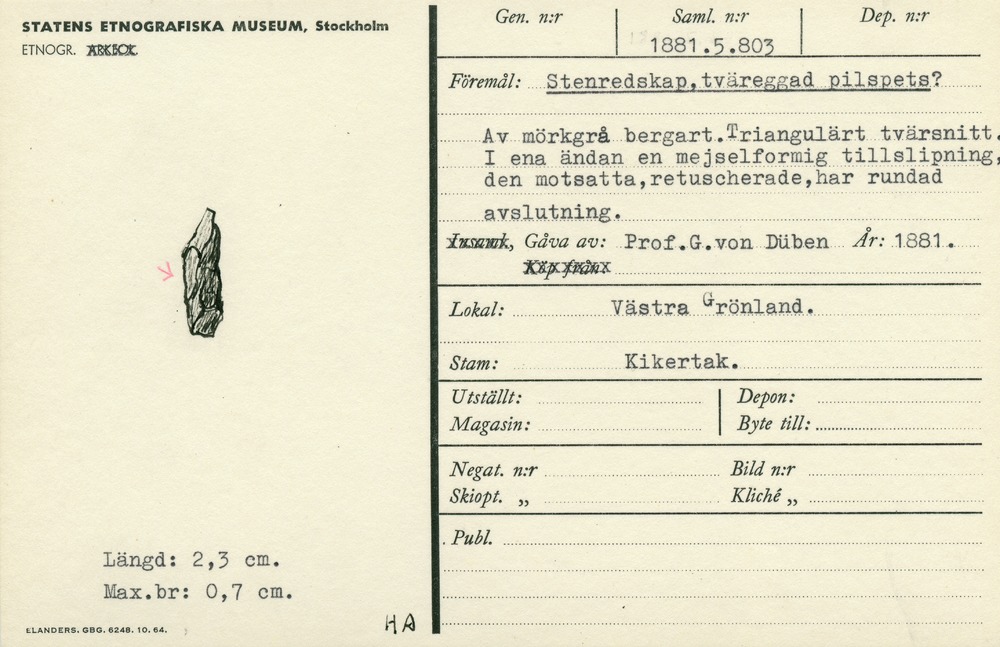 STATENS ETNOGRAFISKA MUSEUM, Stockholm
ETNOGR. ARKEOL.
Längd: 2,3 cm.
Max.br: 0,7 cm.
ELANDERS. GBG. 6248. 10. 64.
HA
Gen. n:r Saml. n:r Dep. n:r
1881.5.803
Föremål: Stenredskap,tväreggad pilspets?
Av mörkgrå bergart.Triangulärt tvärsnitt.
I ena ändan en mejselformig tillslipning,
den motsatta,retuscherade,har rundad
avslutning.
Insaml., Gåva av: Prof.G.von Düben År: 1881.
Köp från:
Lokal: Västra Grönland.
Stam: Kikertak.
Utställt: Depon:
Magasin: Byte till:
Negat. n:r Bild n:r
Skiopt. „ Kliché „
Publ.